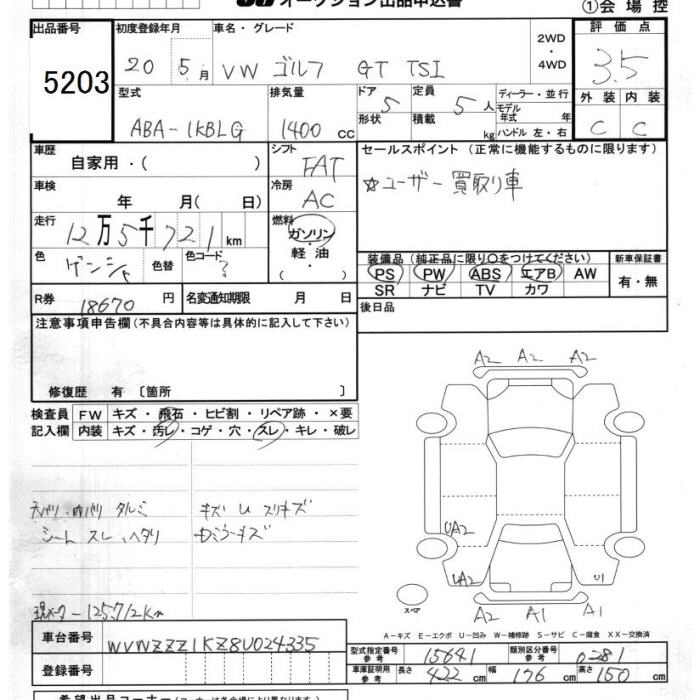 オークション出品申込書
①会場控
出品番号 初度登録年月 車名・グレード 2WD・4WD 評価点
5203 20 5月 VW ゴルフ GT TSI 3.5
型式 排気量 ドア 5 定員 5人 ディーラー・並行 外装 内装
ABA-1KBLG 1400cc 形状 積載 kg モデル年式 年 C C
ハンドル 左・右
車歴 自家用・( ) シフト FAT セールスポイント (正常に機能するものに限ります)
車検 年 月( 日) 冷房 AC ☆ユーザー買取り車
走行 12万5千721km 燃料 ガソリン・軽油・( )
色 ゲンシャ 色替 色コード ? 装備品 (純正品に限り○をつけてください) 新車保証書
PS PW ABS エアB AW 有・無
SR ナビ TV カワ
R券 18670円 名変通知期限 月 日 後日品
注意事項申告欄 (不具合内容等は具体的に記入して下さい)
修復歴 有 [箇所 ]
検査員 FW キズ・飛石・ヒビ割・リペア跡・×要
記入欄 内装 キズ・汚レ・コゲ・穴・スレ・キレ・破レ
A2 A2 A2
天バリ、内バリ タルミ キズ U スリキズ
シート スレ、ヘタリ
UA2
UA2 U1
スペア A2 A1 A1
現メーター125712km
A-キズ E-エクボ U-凹み W-補修跡 S-サビ C-腐食 XX-交換済
車台番号 WVWZZZ1KZ8U024335 型式指定番号 参考 15641 類別区分番号 参考 0281
登録番号 車庫証明用 参考 長さ 422cm 幅 176cm 高さ 150cm
希望出品コーナー